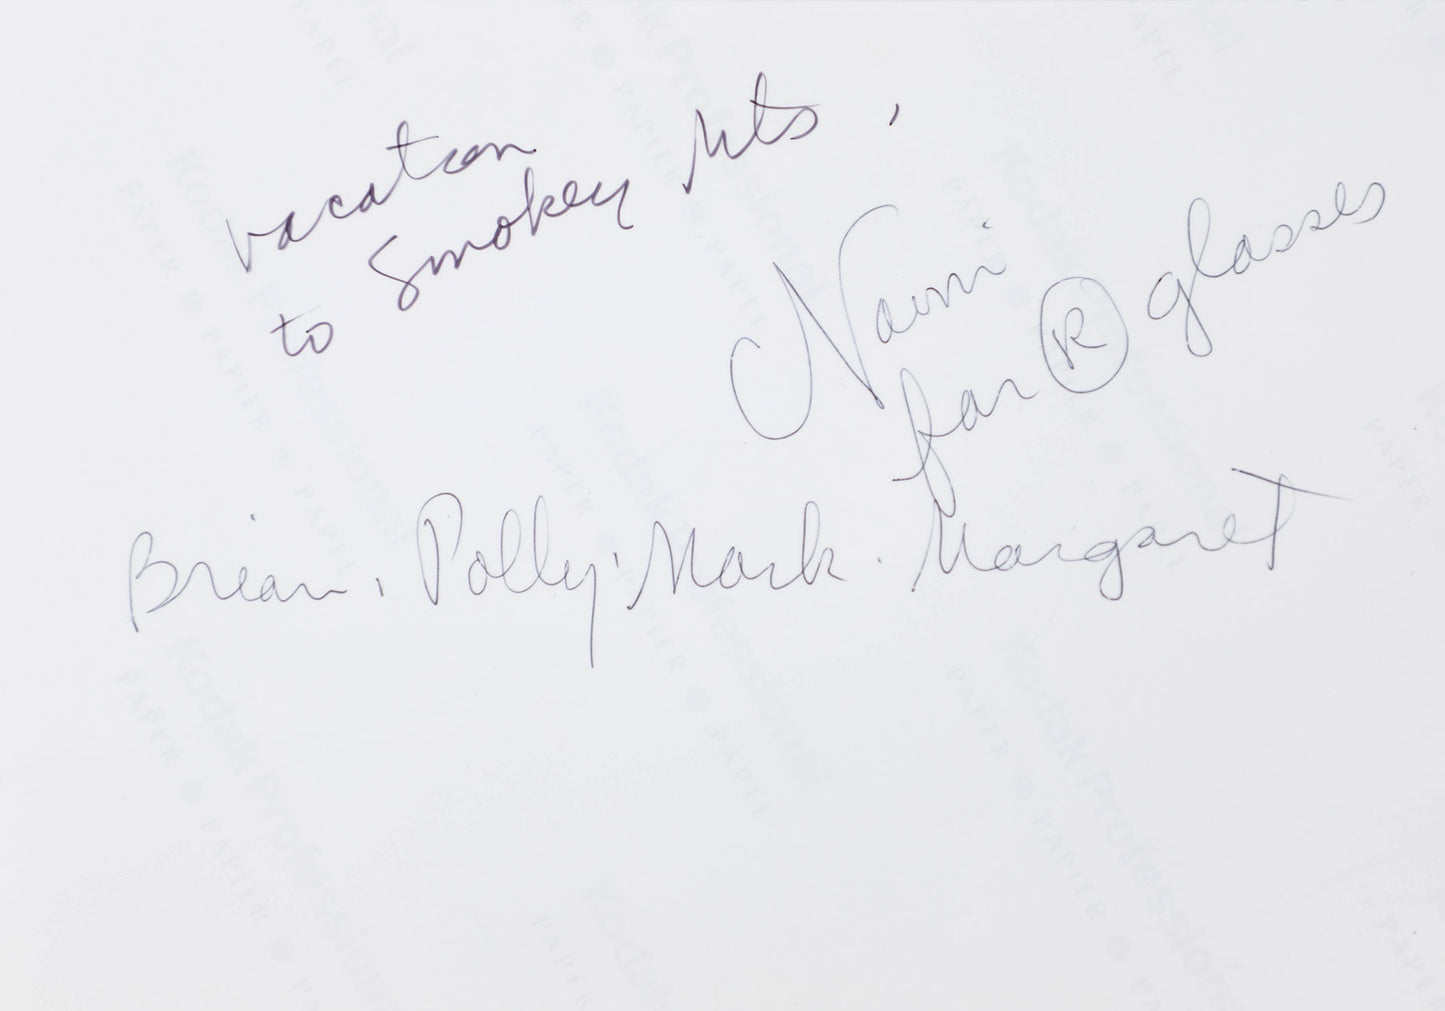 vacation
to Smokey Mts.
Naomi
far Ⓡ glasses
Brian, Polly, Mark. Margaret
Kodak Professional
PAPIER • PAPEL